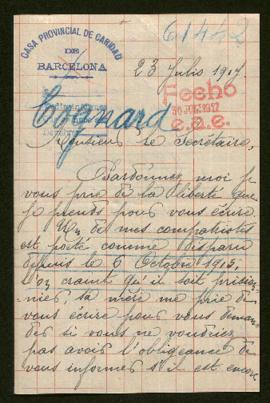 61442
CASA PROVINCIAL DE CARIDAD
DE
BARCELONA
23 Julio 1917
Fecho
30 JUL 1917
e.a.e.
Cognard
Monsieur le Secrétaire,
Pardonnez moi je
vous prie de la liberté que
je prends pour vous écrire.
Un de mes compatriotes
est porté comme disparu
depuis le 6 Octobre 1915,
l'on craint qu'il soit prison-
nier, sa mère me prie de
vous écrire pour vous deman-
der si vous ne voudriez
pas avoir l'obligeance de
vous informer s'il est encore